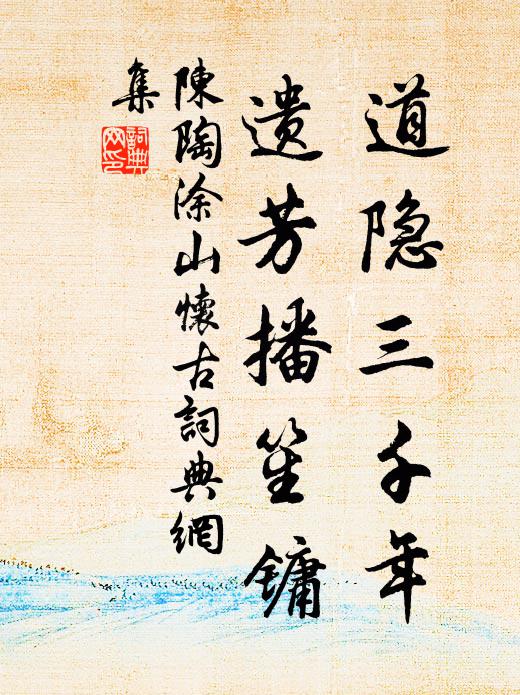 道隐三千年
遗芳播笙镛
陳陶涂山懷古詞典網
集
詞典
网印